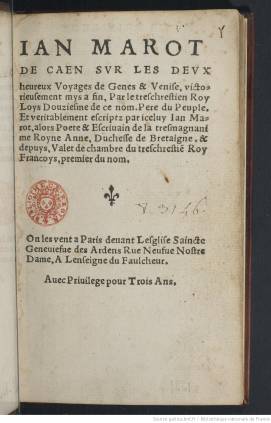 IAN MAROT
DE CAEN SVR LES DEVX
heureux Voyages de Genes & Venise, victo-
rieusement mys a fin, Par le treschrestien Roy
Loys Douziesme de ce nom. Pere du Peuple.
Et veritablement escriptz par iceluy Ian Ma-
rot, alors Poete & Escriuain de la tresmagnani
me Royne Anne, Duchesse de Bretaigne, &
depuys, Valet de chambre du treschrestiē Roy
Francoys, premier du nom.
On les vent a Paris deuant Lesglise Saincte
Geneuiefue des Ardens Rue Neufue Nostre
Dame, A Lenseigne du Faulcheur.
Auec Priuilege pour Trois Ans.
Source gallica.bnf.fr / Bibliothèque nationale de France